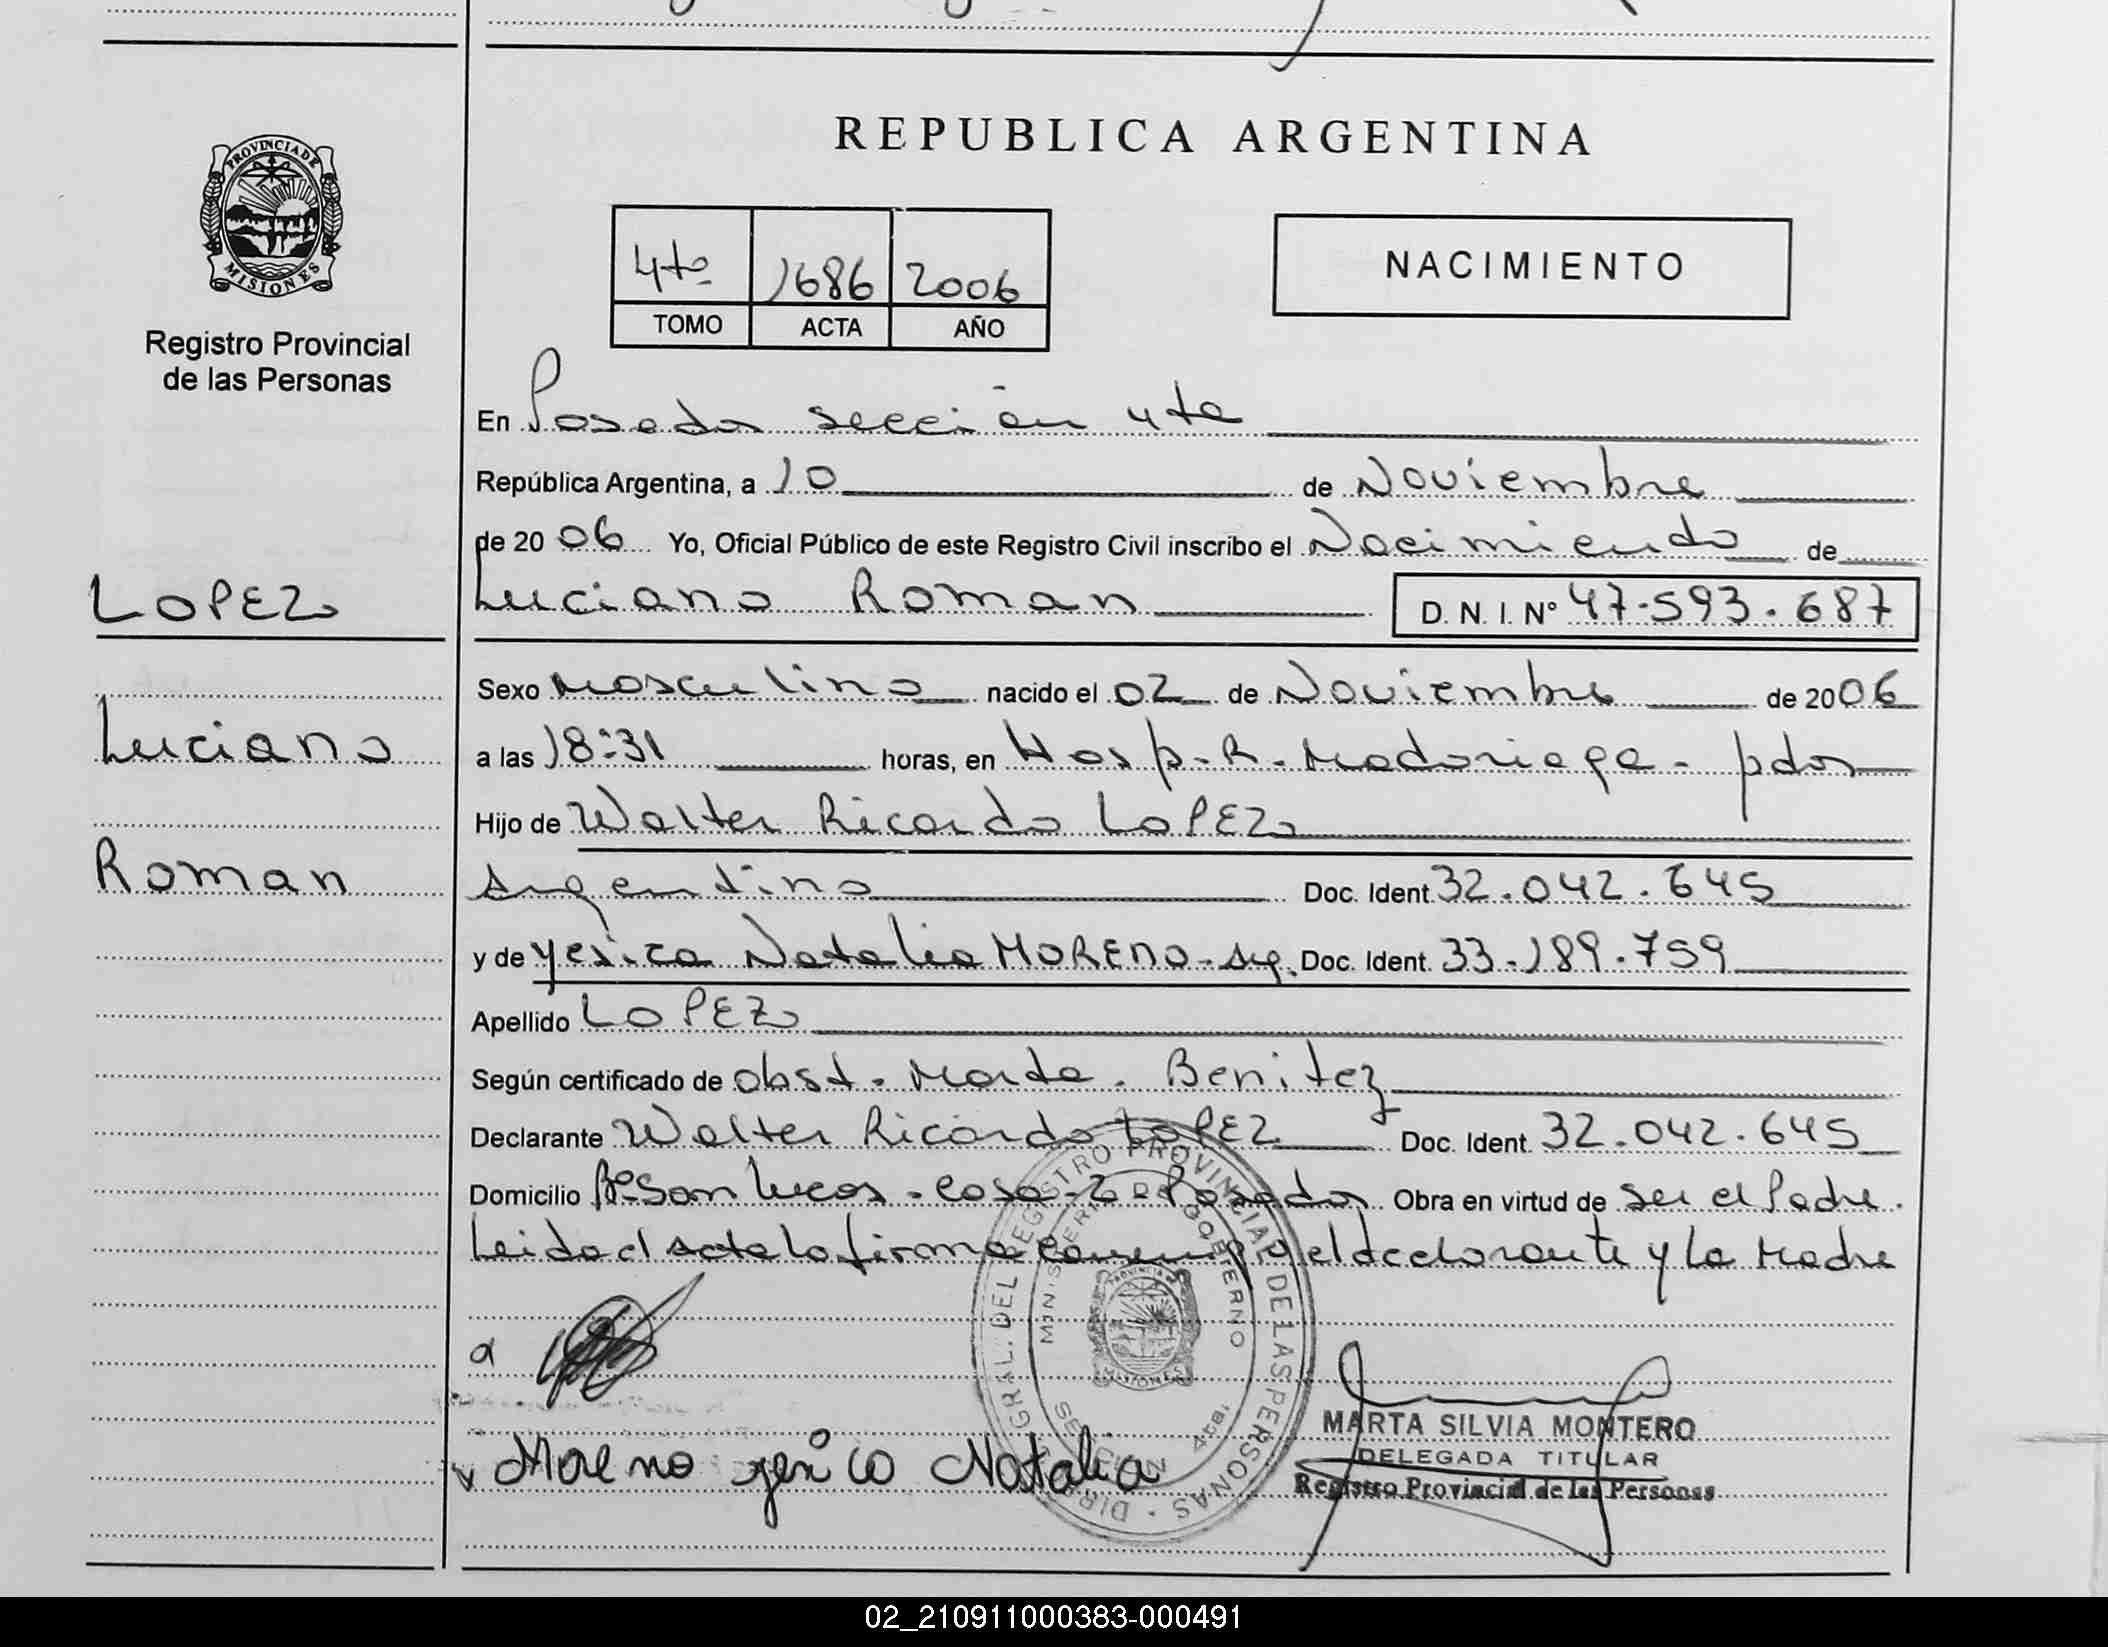 REPUBLICA ARGENTINA
PROVINCIA DE
MISIONES
Registro Provincial
de las Personas
4to 1686 2006
TOMO ACTA AÑO
NACIMIENTO
En Posadas sección 4ta
República Argentina, a 10 de Noviembre
de 2006 Yo, Oficial Público de este Registro Civil inscribo el Nacimiento de
LOPEZ
Luciano Roman D. N. I. Nº 47.593.687
Sexo Masculino nacido el 02 de Noviembre de 2006
Luciano
a las 18:31 horas, en Hosp. R. Madariaga - pdas
Hijo de Walter Ricardo LOPEZ
Roman
Argentino Doc. Ident. 32.042.645
y de Yesica Natalia MORENO - Arg. Doc. Ident. 33.189.759
Apellido LOPEZ
Según certificado de obst. Marta. Benitez
Declarante Walter Ricardo LOPEZ Doc. Ident. 32.042.645
Domicilio Bº San Lucas - Casa - 2 - Posadas Obra en virtud de ser el Padre.
Leida el acta la firma conmigo el declarante y la Madre
DIR. GRAL. DEL REGISTRO PROVINCIAL DE LAS PERSONAS
MINISTERIO DE GOBIERNO
PROVINCIA DE
MISIONES
SECCION 4ta
MARTA SILVIA MONTERO
DELEGADA TITULAR
Registro Provincial de las Personas
Moreno yesica Natalia
02_210911000383-000491